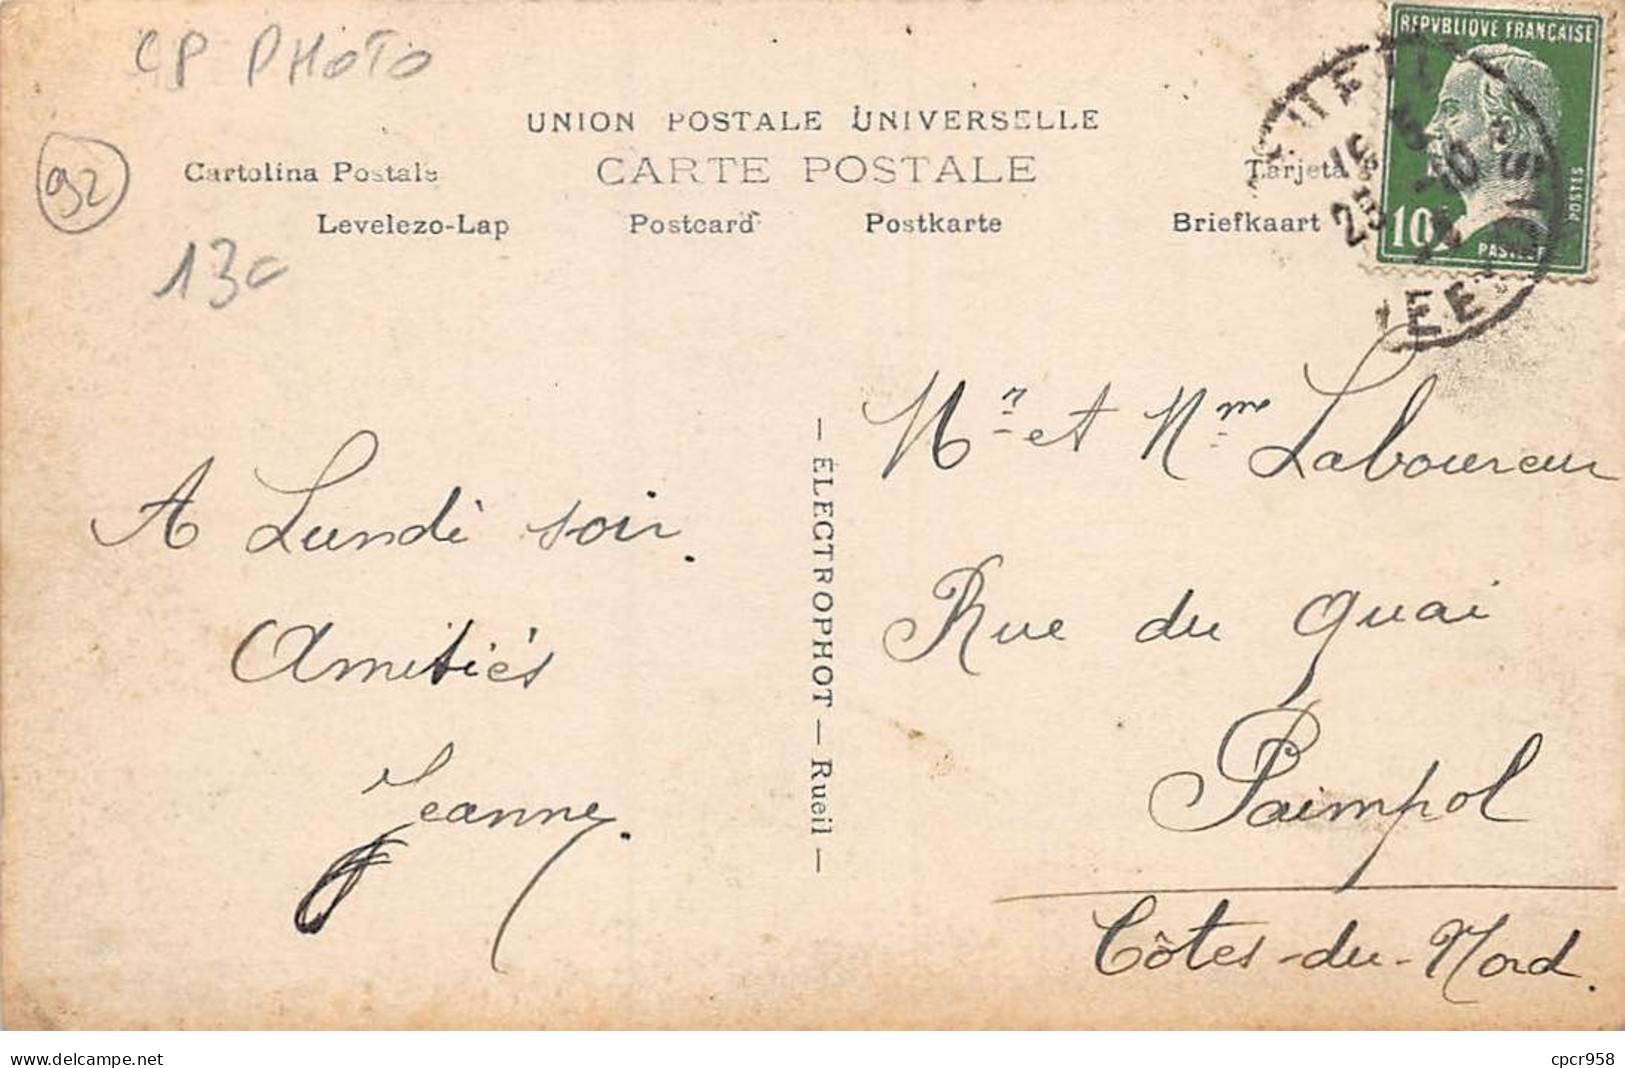 CP PHOTO
92
13c
UNION POSTALE UNIVERSELLE
CARTE POSTALE
Cartolina Postale
Tarjeta
Levelezo-Lap Postcard Postkarte Briefkaart
REPVBLIQVE FRANÇAISE
10
POSTES
A Lundi soir.
Amitiés
Jeanne.
— ÉLECTROPHOT — Rueil —
Mr et Mme Laboureur
Rue du Quai
Paimpol
Côtes-du-Nord.
www.delcampe.net
cpcr958